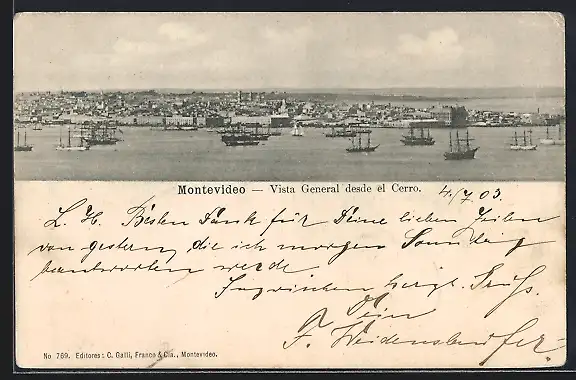 Montevideo — Vista General desde el Cerro.
4./7.03.
L. H. Besten Dank für Deine lieben Zeilen
von gestern, die ich morgen Sonntag
beantworten werde
Inzwischen herzl. Gruß.
Dein
F. Weidens
No 769. Editores: C. Galli, Franco & Cia., Montevideo.